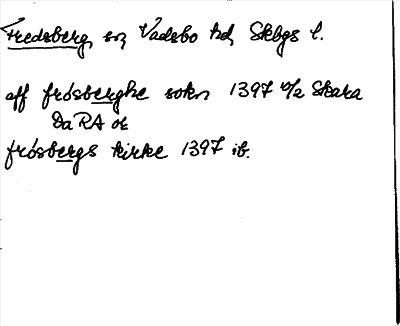 Fredsberg, sn, Vadsbo hd, Skbgs l.
aff frösberghe sokn 1397 2/2 Skara
DaRA or
frösbergs kirke 1397 ib.